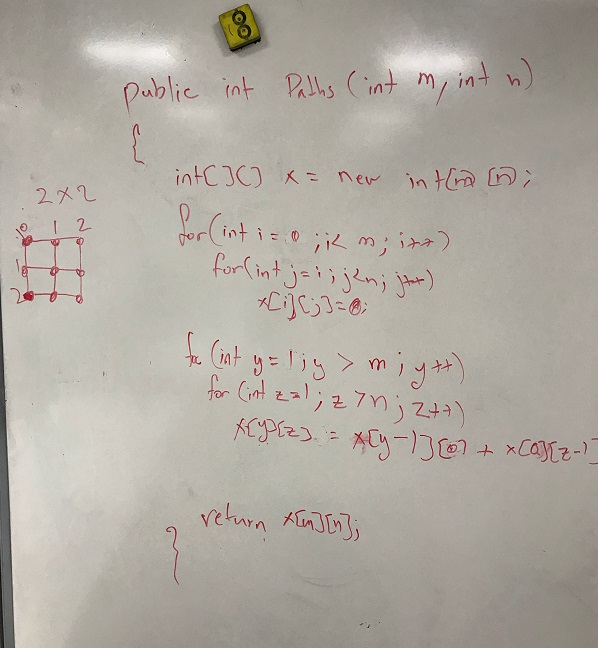 8
public int Paths (int m, int n)
{
int[][] x = new int[m][n];
2x2
0 1 2
1
2
for(int i = 0 ; i < m; i++)
for(int j = i; j<n; j++)
x[i][j]=0;
for (int y = 1; y > m; y++)
for (int z=1; z>n; z++)
x[y][z] = x[y-1][0] + x[0][z-1]
return x[m][n];
}